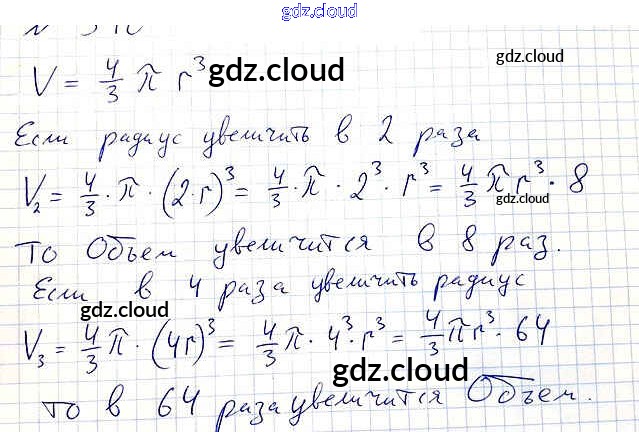 gdz.cloud
V = 4/3 π r³ gdz.cloud gdz.cloud
Если радиус увеличить в 2 раза
V₂ = 4/3 · π · (2·r)³ = 4/3 · π · 2³ · r³ = 4/3 π r³ · 8
gdz.cloud
То Объем увеличится в 8 раз.
Если в 4 раза увеличить радиус
gdz.cloud
V₃ = 4/3 π · (4r)³ = 4/3 π · 4³ · r³ = 4/3 π r³ · 64
gdz.cloud gdz.cloud
то в 64 раза увеличится Объем.